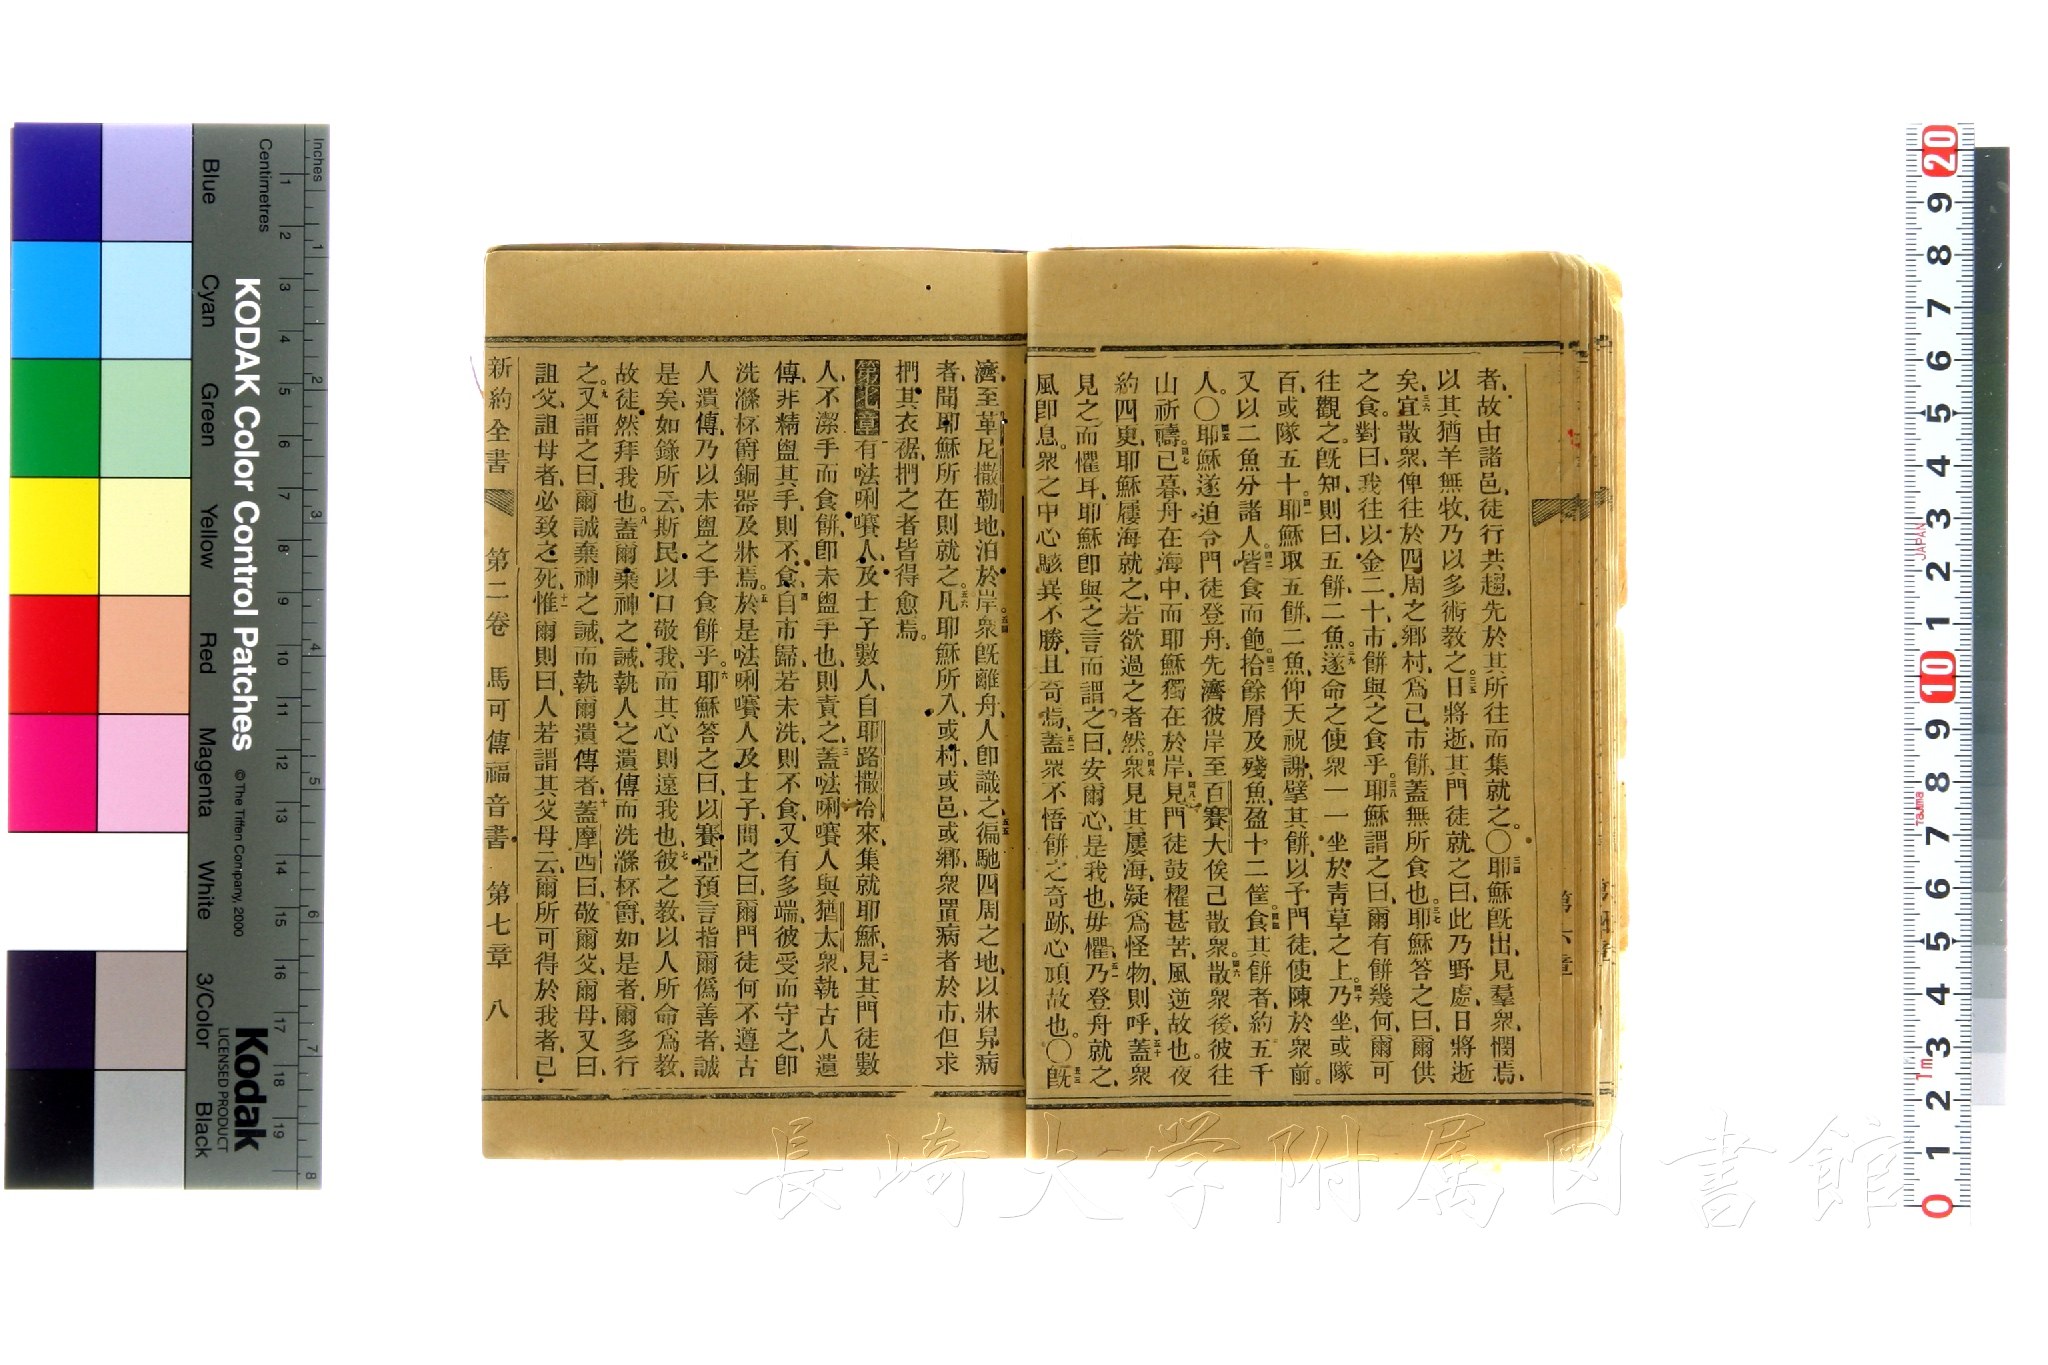 者、故由諸邑、徒行共趨、先於其所往而集就之。〇三四耶穌旣出、見羣衆、憫焉、
以其猶羊無牧、乃以多術教之。三五日將逝、其門徒就之曰、此乃野處、日將逝
矣、三六宜散衆、俾往於四周之鄉村、爲己市餅、蓋無所食也。三七耶穌答之曰、爾供
之食。對曰、我往以金二十、市餅與之食乎。三八耶穌謂之曰、爾有餅幾何、爾可
往觀之。旣知、則曰、五餅、二魚。三九遂命之使衆一一坐於靑草之上。四十乃坐、或隊
百、或隊五十。四一耶穌取五餅、二魚、仰天祝謝、擘其餅、以予門徒、使陳於衆前。
又以二魚分諸人。四二皆食而飽。四三拾餘屑及殘魚、盈十二筐。四四食其餅者、約五千
人。〇四五耶穌遂迫令門徒登舟、先濟彼岸至百賽大、俟己散衆。四六散衆後、彼往
山祈禱。四七已暮、舟在海中、而耶穌獨在於岸、四八見門徒鼓櫂甚苦、風逆故也。夜
約四更、耶穌履海就之、若欲過之者然。四九衆見其履海、疑爲怪物、則呼、五十蓋衆
見之而懼耳、耶穌卽與之言而謂之曰、安爾心、是我也、毋懼、五一乃登舟就之、
風卽息。衆之中心駭異不勝、且奇焉、五二蓋衆不悟餅之奇跡、心頑故也。〇五三旣
濟、至革尼撒勒地、泊於岸。五四衆旣離舟、人卽識之、五五徧馳四周之地、以牀舁病
者、聞耶穌所在則就之。五六凡耶穌所入、或村、或邑、或鄉、衆置病者於市、但求
捫其衣裾、捫之者皆得愈焉。
第七章 一有㕸唎㘔人、及士子數人、自耶路撒冷來、集就耶穌、二見其門徒數
人、不潔手而食餅、卽未盥手也、則責之、三蓋㕸唎㘔人與猶太衆、執古人遺
傳、非精盥其手、則不食、四自市歸、若未洗則不食、又有多端、彼受而守之、卽
洗滌杯爵銅器及牀焉。五於是㕸唎㘔人及士子、問之曰、爾門徒何不遵古
人遺傳、乃以未盥之手食餅乎。六耶穌答之曰、以賽亞預言指爾僞善者、誠
是矣、如錄所云、斯民以口敬我、而其心則遠我也、七彼之教、以人所命爲教、
故徒然拜我也。八蓋爾棄神之誡、執人之遺傳而洗滌杯爵、如是者、爾多行
之。九又謂之曰、爾誠棄神之誡、而執爾遺傳者、十蓋摩西曰、敬爾父、爾母、又曰、
詛父詛母者、必致之死、十一惟爾則曰、人若謂其父母云、爾所可得於我者、已
新約全書 第二卷 馬可傳福音書 第七章 八
長崎大学附属図書館
KODAK Color Control Patches
© The Tiffen Company, 2000
Kodak
LICENSED PRODUCT
Inches
Centimetres
Blue
Cyan
Green
Yellow
Red
Magenta
White
3/Color
Black
JAPAN
Tajima
1m